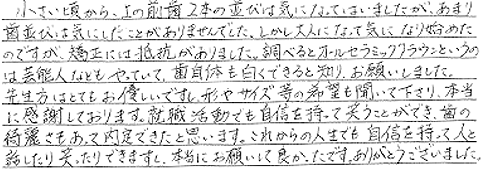 小さい頃から、上の前歯2本の並びは気になってはいましたが、あまり
歯並びは気にしたことがありませんでした。しかし大人になって気になり始めた
のですが、矯正には抵抗がありました。調べるとオールセラミッククラウンというの
は芸能人などもやっていて、歯自体も白くできると知り、お願いしました。
先生方はとてもお優しいですし、形やサイズ等の希望も聞いて下さり、本当
に感謝しております。就職活動でも自信を持って笑うことができ、歯の
綺麗さもあって内定できたと思います。これからの人生でも自信を持って人と
話したり笑ったりできますし、本当にお願いして良かったです。ありがとうございました。